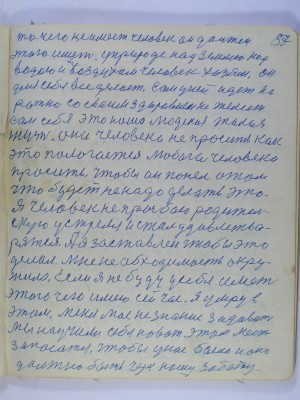 87
то чего не имеет человек он должен
этого иметь. природе над землею над
водою и воздухом человек хозяин, он
для себя все делает. Сам умней идет за
ратно со своим здоровьем не жалеет
сам себя это наша людская такая
она человека не просить как
это пологается любога человека
просить, чтобы он понел о том
что будет не надо делать это.
Я человек не пробаю родител
скую устремил и стал удовлетво
рятся. Я заставлен чтобы это
делал. Мне не обходимость окру
жила, если я не буду у себя иметь
этого чего имею сей час. Я умру в
этом, меня мое незнание задавит
Мы научили себя поват этаго место
запосатся, чтобы у нас было и оно
должно быть через нашу заботу.